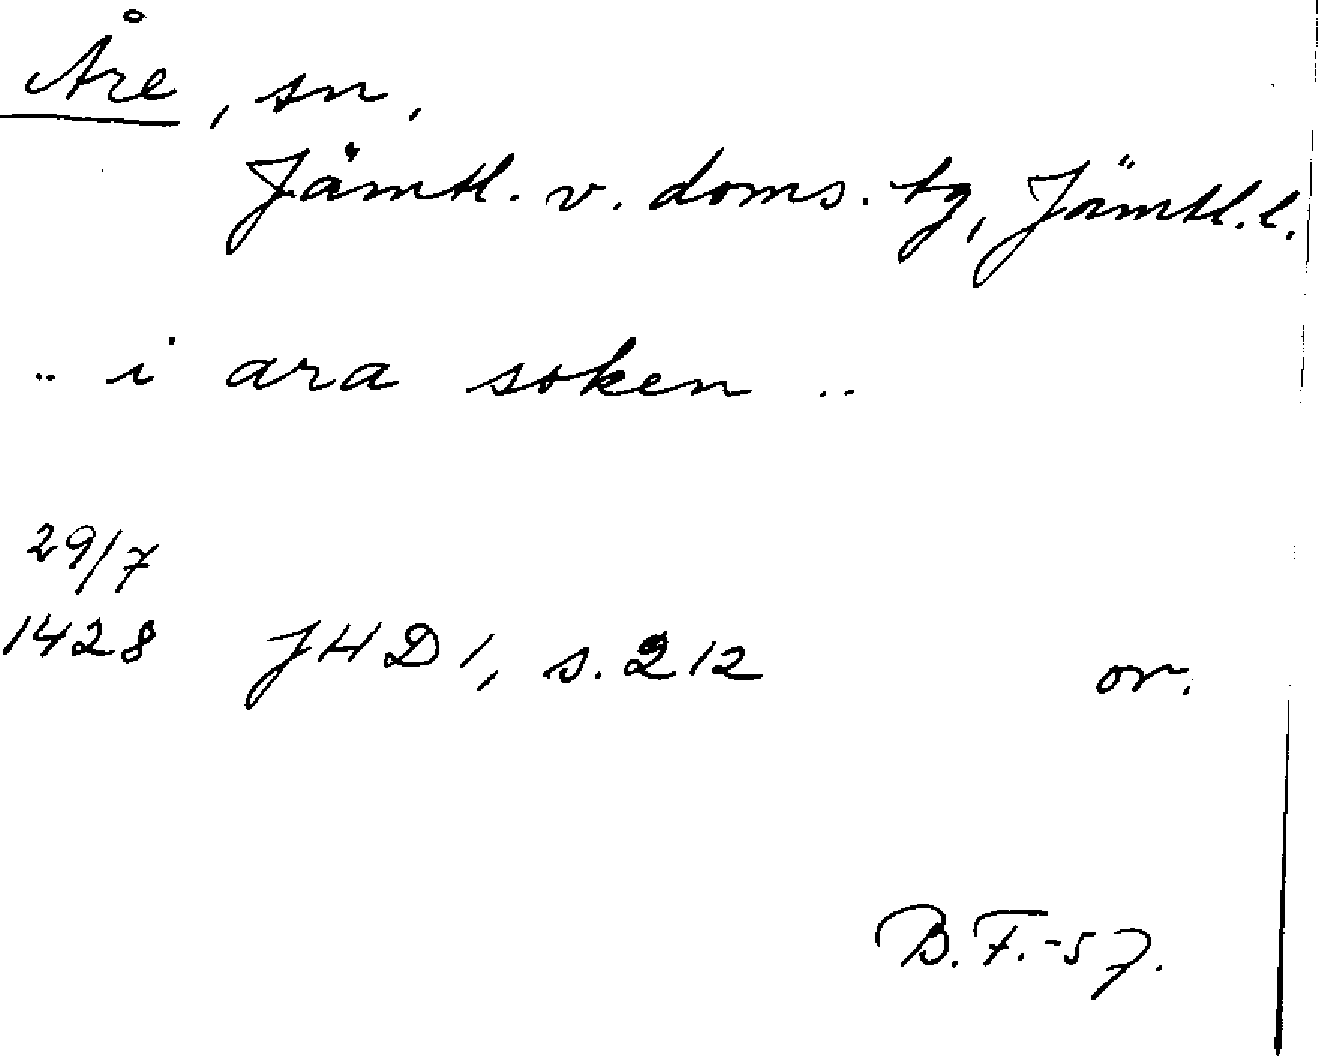 Åre, sn,
Jämtl. v. doms. tg, Jämtl. l.
.. i ara soken ..
29/7
1428 JHD 1, s. 212 or.
B.F.-57.